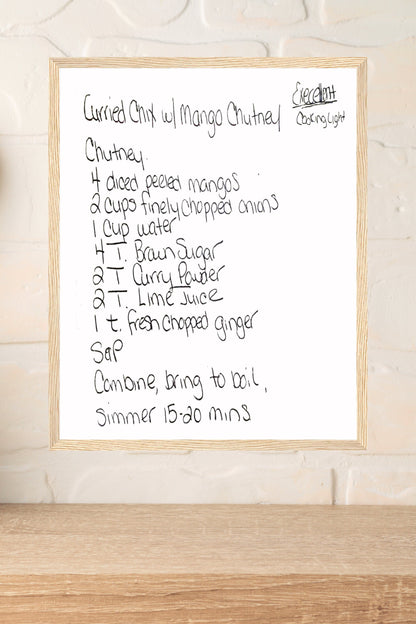 Curried Chix w/ Mango Chutney
Excellent
Cooking Light
Chutney.
4 diced peeled mangos
2 cups finely chopped onions
1 cup water
4 T. Brown Sugar
2 T Curry Powder
2 T. Lime Juice
1 t. fresh chopped ginger
S&P
Combine, bring to boil,
Simmer 15-20 mins